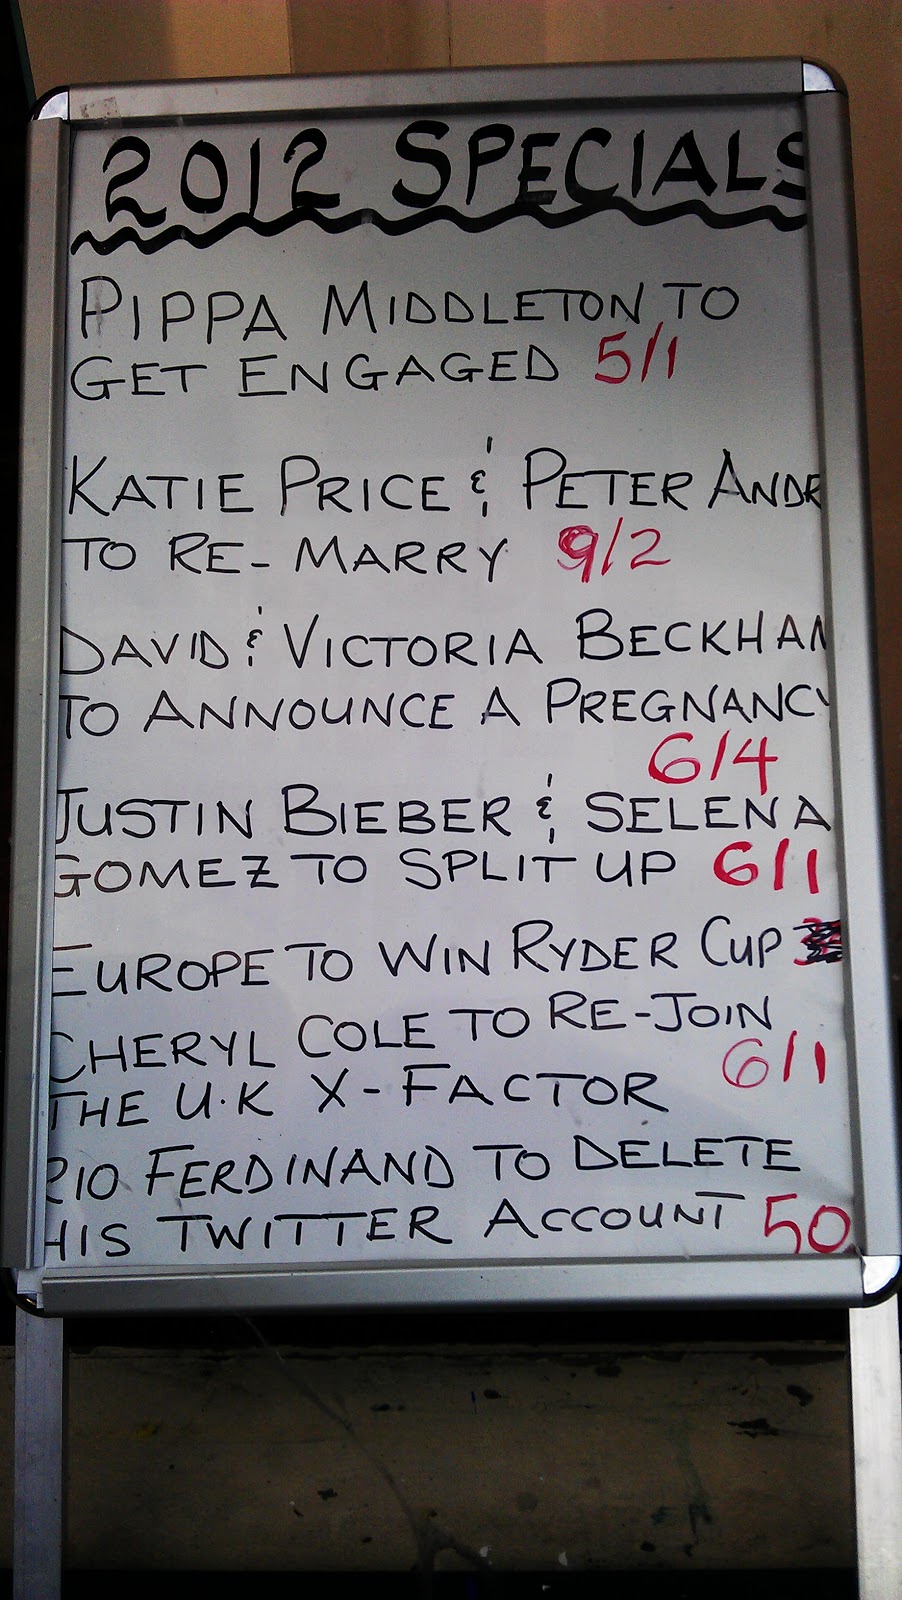 2012 SPECIALS
PIPPA MIDDLETON TO
GET ENGAGED 5/1
KATIE PRICE & PETER ANDR
TO RE-MARRY 9/2
DAVID & VICTORIA BECKHAM
TO ANNOUNCE A PREGNANCY
6/4
JUSTIN BIEBER & SELENA
GOMEZ TO SPLIT UP 6/1
EUROPE TO WIN RYDER CUP
CHERYL COLE TO RE-JOIN
THE U.K X-FACTOR 6/1
RIO FERDINAND TO DELETE
HIS TWITTER ACCOUNT 50